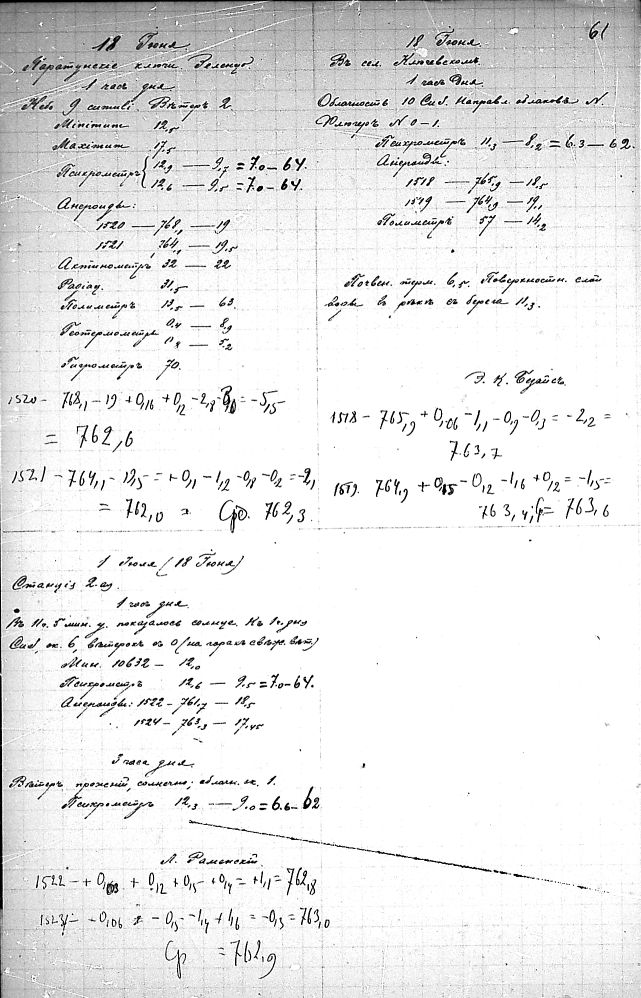 61
18 Іюня
Паратунскіе ключи
1 часъ дня
Небо 9 Вѣтеръ 2.
Minimum 12,5
Maximum 17,5
Психрометръ 12,9 — 9,7 = 7.0 — 64.
12,6 — 9,5 = 7.0 — 64.
Анероиды:
1520 — 768,1 — 19
1521 764,1 — 19,5
Актинометръ 32 — 22
31,5
Полиметръ 13,5 — 63.
Геотермометръ 0,4 — 8,9
— 5,2
Гигрометръ 70.
1520 — 768,1 — 19 + 0,16 + 0,12 — 2,8 = — 5,5
= 762,6
1521 — 764,1 — 19,5 = + 0,1 — 1,2 — 0,8 — 0,2 = — 2,1
= 762,0 = Ср. 762,3.
18 Іюня.
Въ сел. Ключевскомъ.
1 часъ дня.
Облачность 10 Направл. облаковъ N.
Флюгеръ N 0—1.
Психрометръ 11,3 — 8,2 = 6.3 — 62.
Анероиды:
1518 — 765,9 — 18,5
1519 — 764,9 — 19,1
Полиметръ 57 — 14,2
Почвен. терм. 6,5. Поверхностн. слой
воды въ рѣкѣ съ берега 11,3.
Э. К.
1518 — 765,9 + 0,06 — 1,1 — 0,9 — 0,3 = — 2,2 =
763,7
1519. 764,9 + 0,15 — 0,12 — 1,6 + 0,12 = — 1,5 =
763,4; Ср = 763,6
1 Іюля (18 Іюня)
Станція 2-ая.
1 часъ дня.
Въ 11 ч. 5 мин. у. показалось солнце. Къ 1 ч. дня
ок. 6, вѣтерокъ съ O (на горахъ свѣж. вѣт.)
Мин. 10632 — 12,0
Психрометръ 12,6 — 9,5 = 7.0 — 64.
Анероиды: 1522 — 761,7 — 18,5
1524 — 763,3 — 17,45
3 часа дня.
Вѣтеръ прежній, солнечно; облачн. ок. 1.
Психрометръ 12,3 — 9,0 = 6.6 — 62
Л. Раменскій.
1522 — + 0,03 + 0,12 + 0,15 + 0,4 = + 1,1 = 762,8
— 0,06 — 0,5 — 1,4 + 1,6 = — 0,3 = 763,0
Ср = 762,9